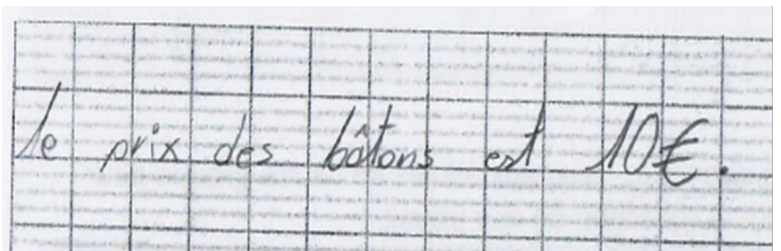 le prix des bâtons est 10€.